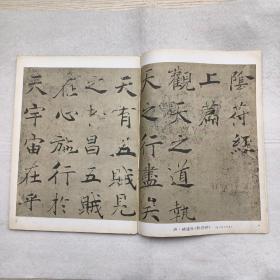 陰符經
上篇
觀天之道執
天之行盡矣
天有五賊見
之者昌五賊
在心施行於
天宇宙在乎